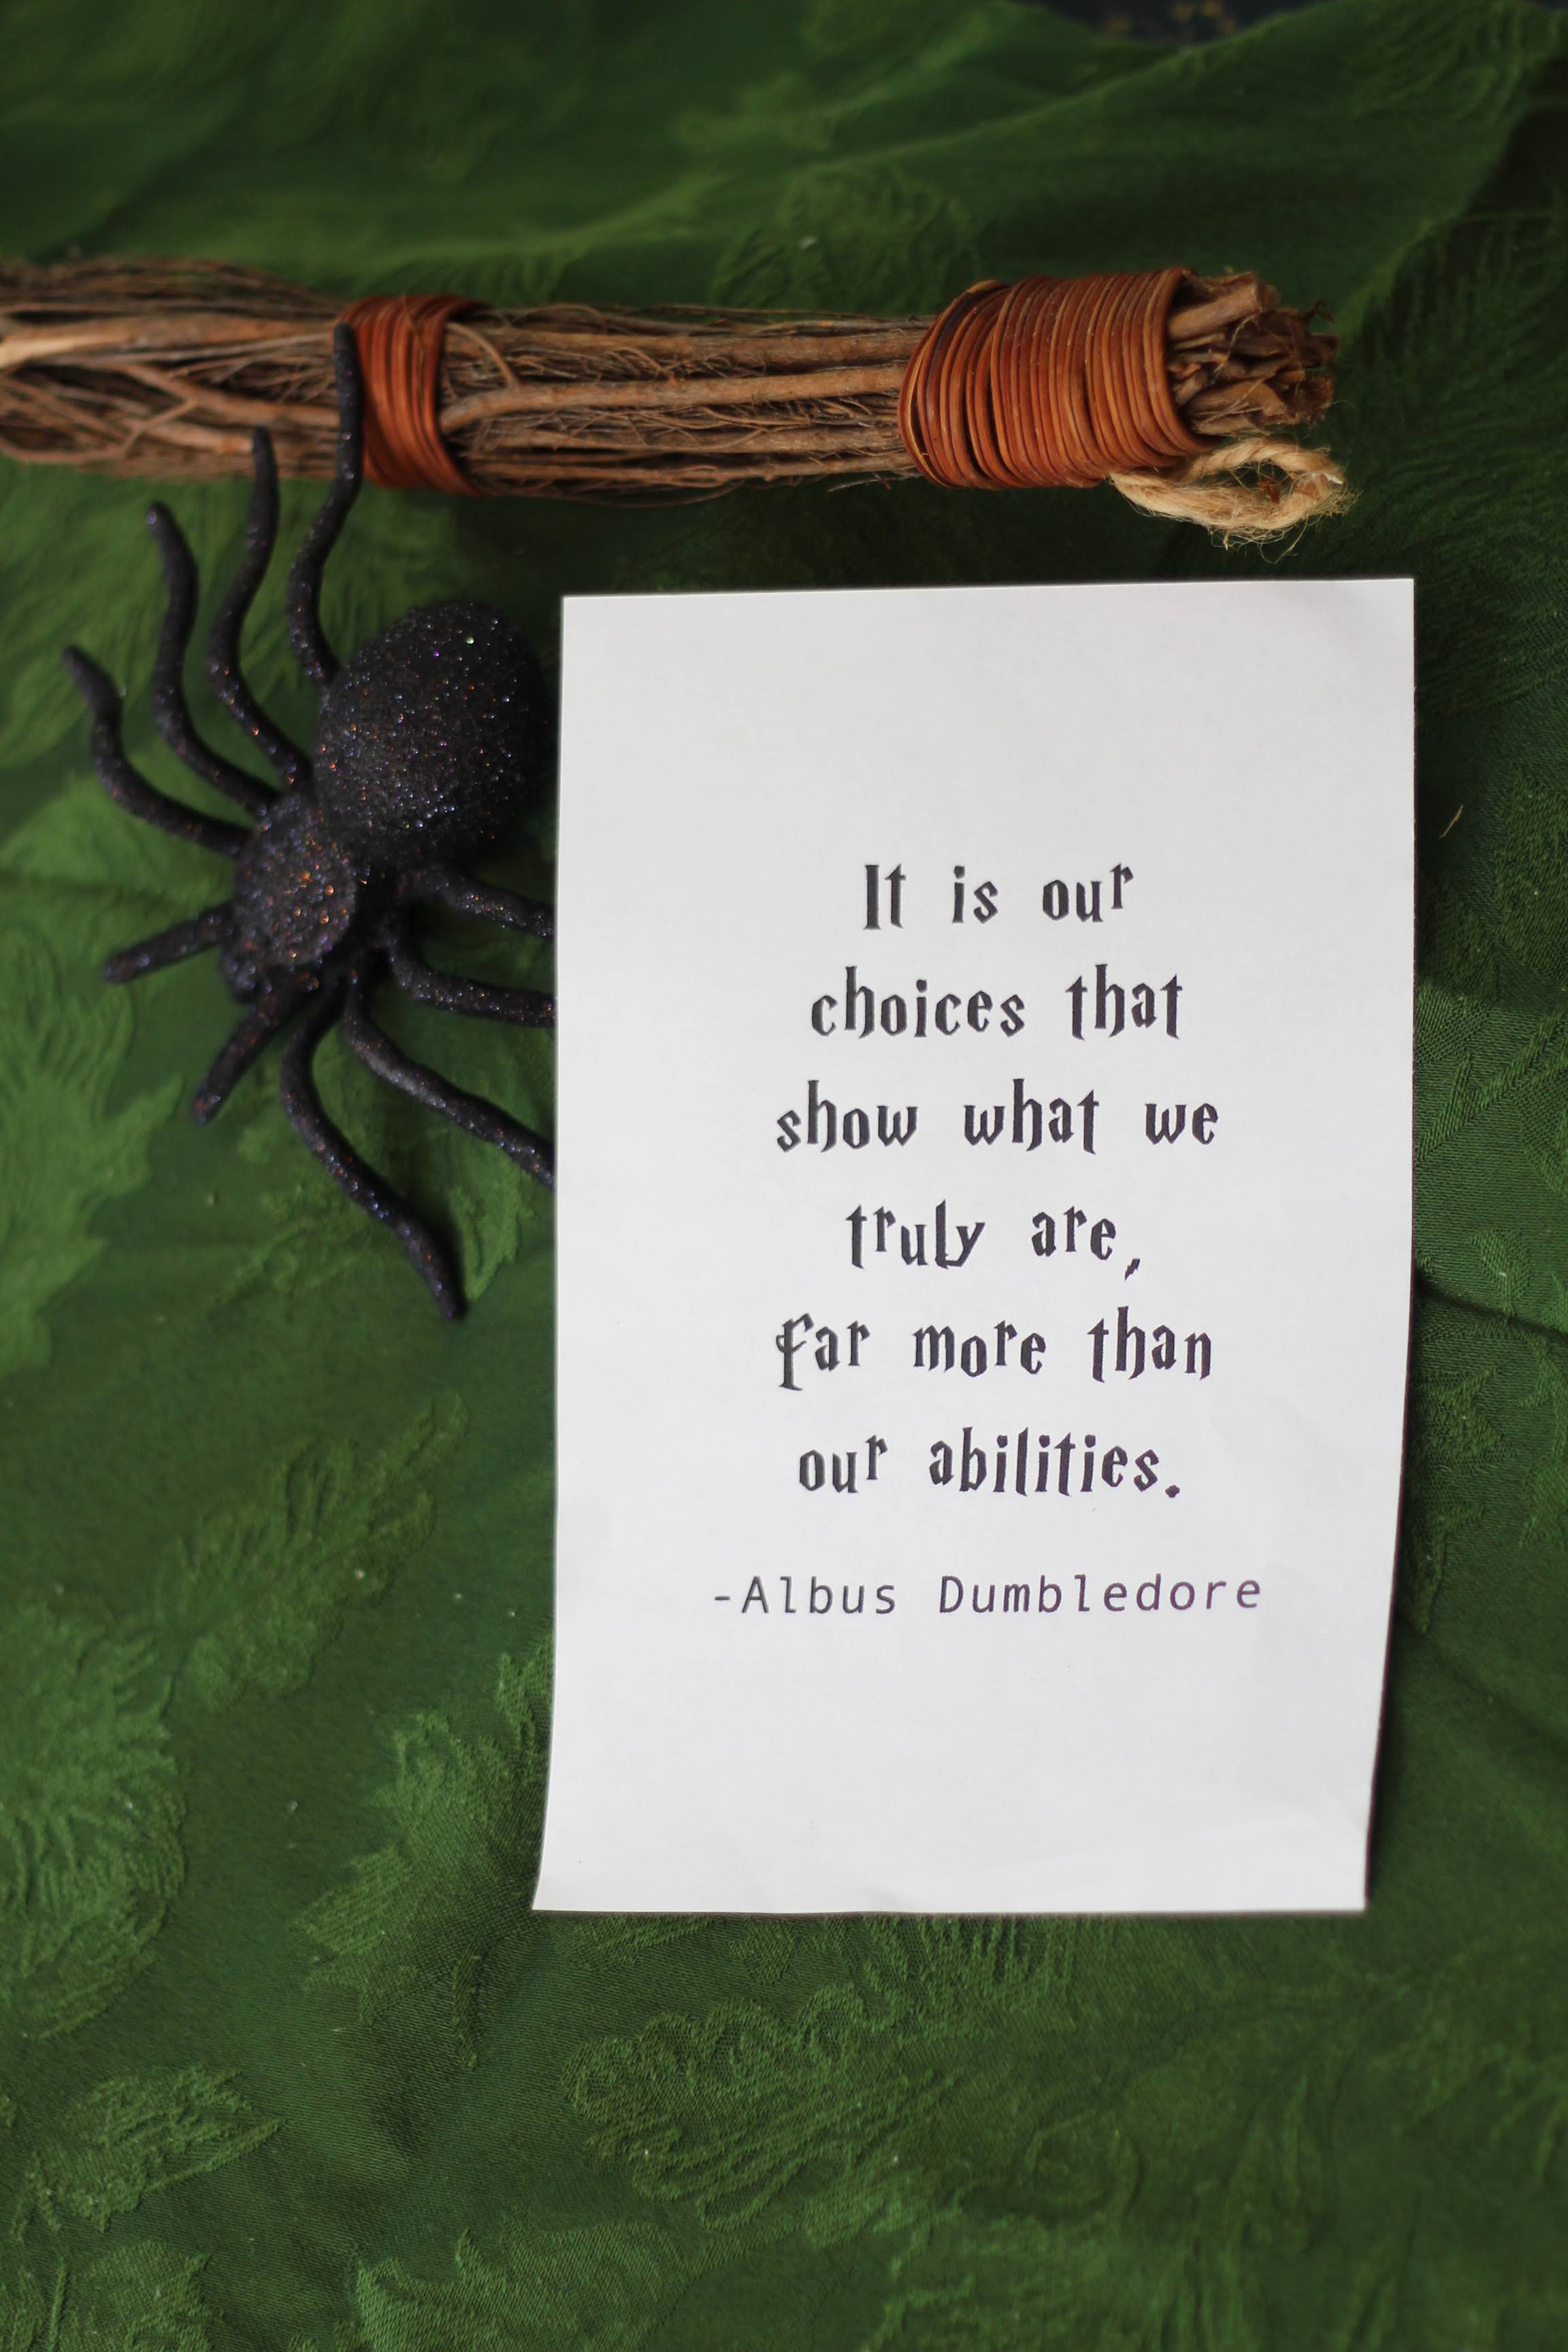 It is our
choices that
show what we
truly are,
far more than
our abilities.
-Albus Dumbledore